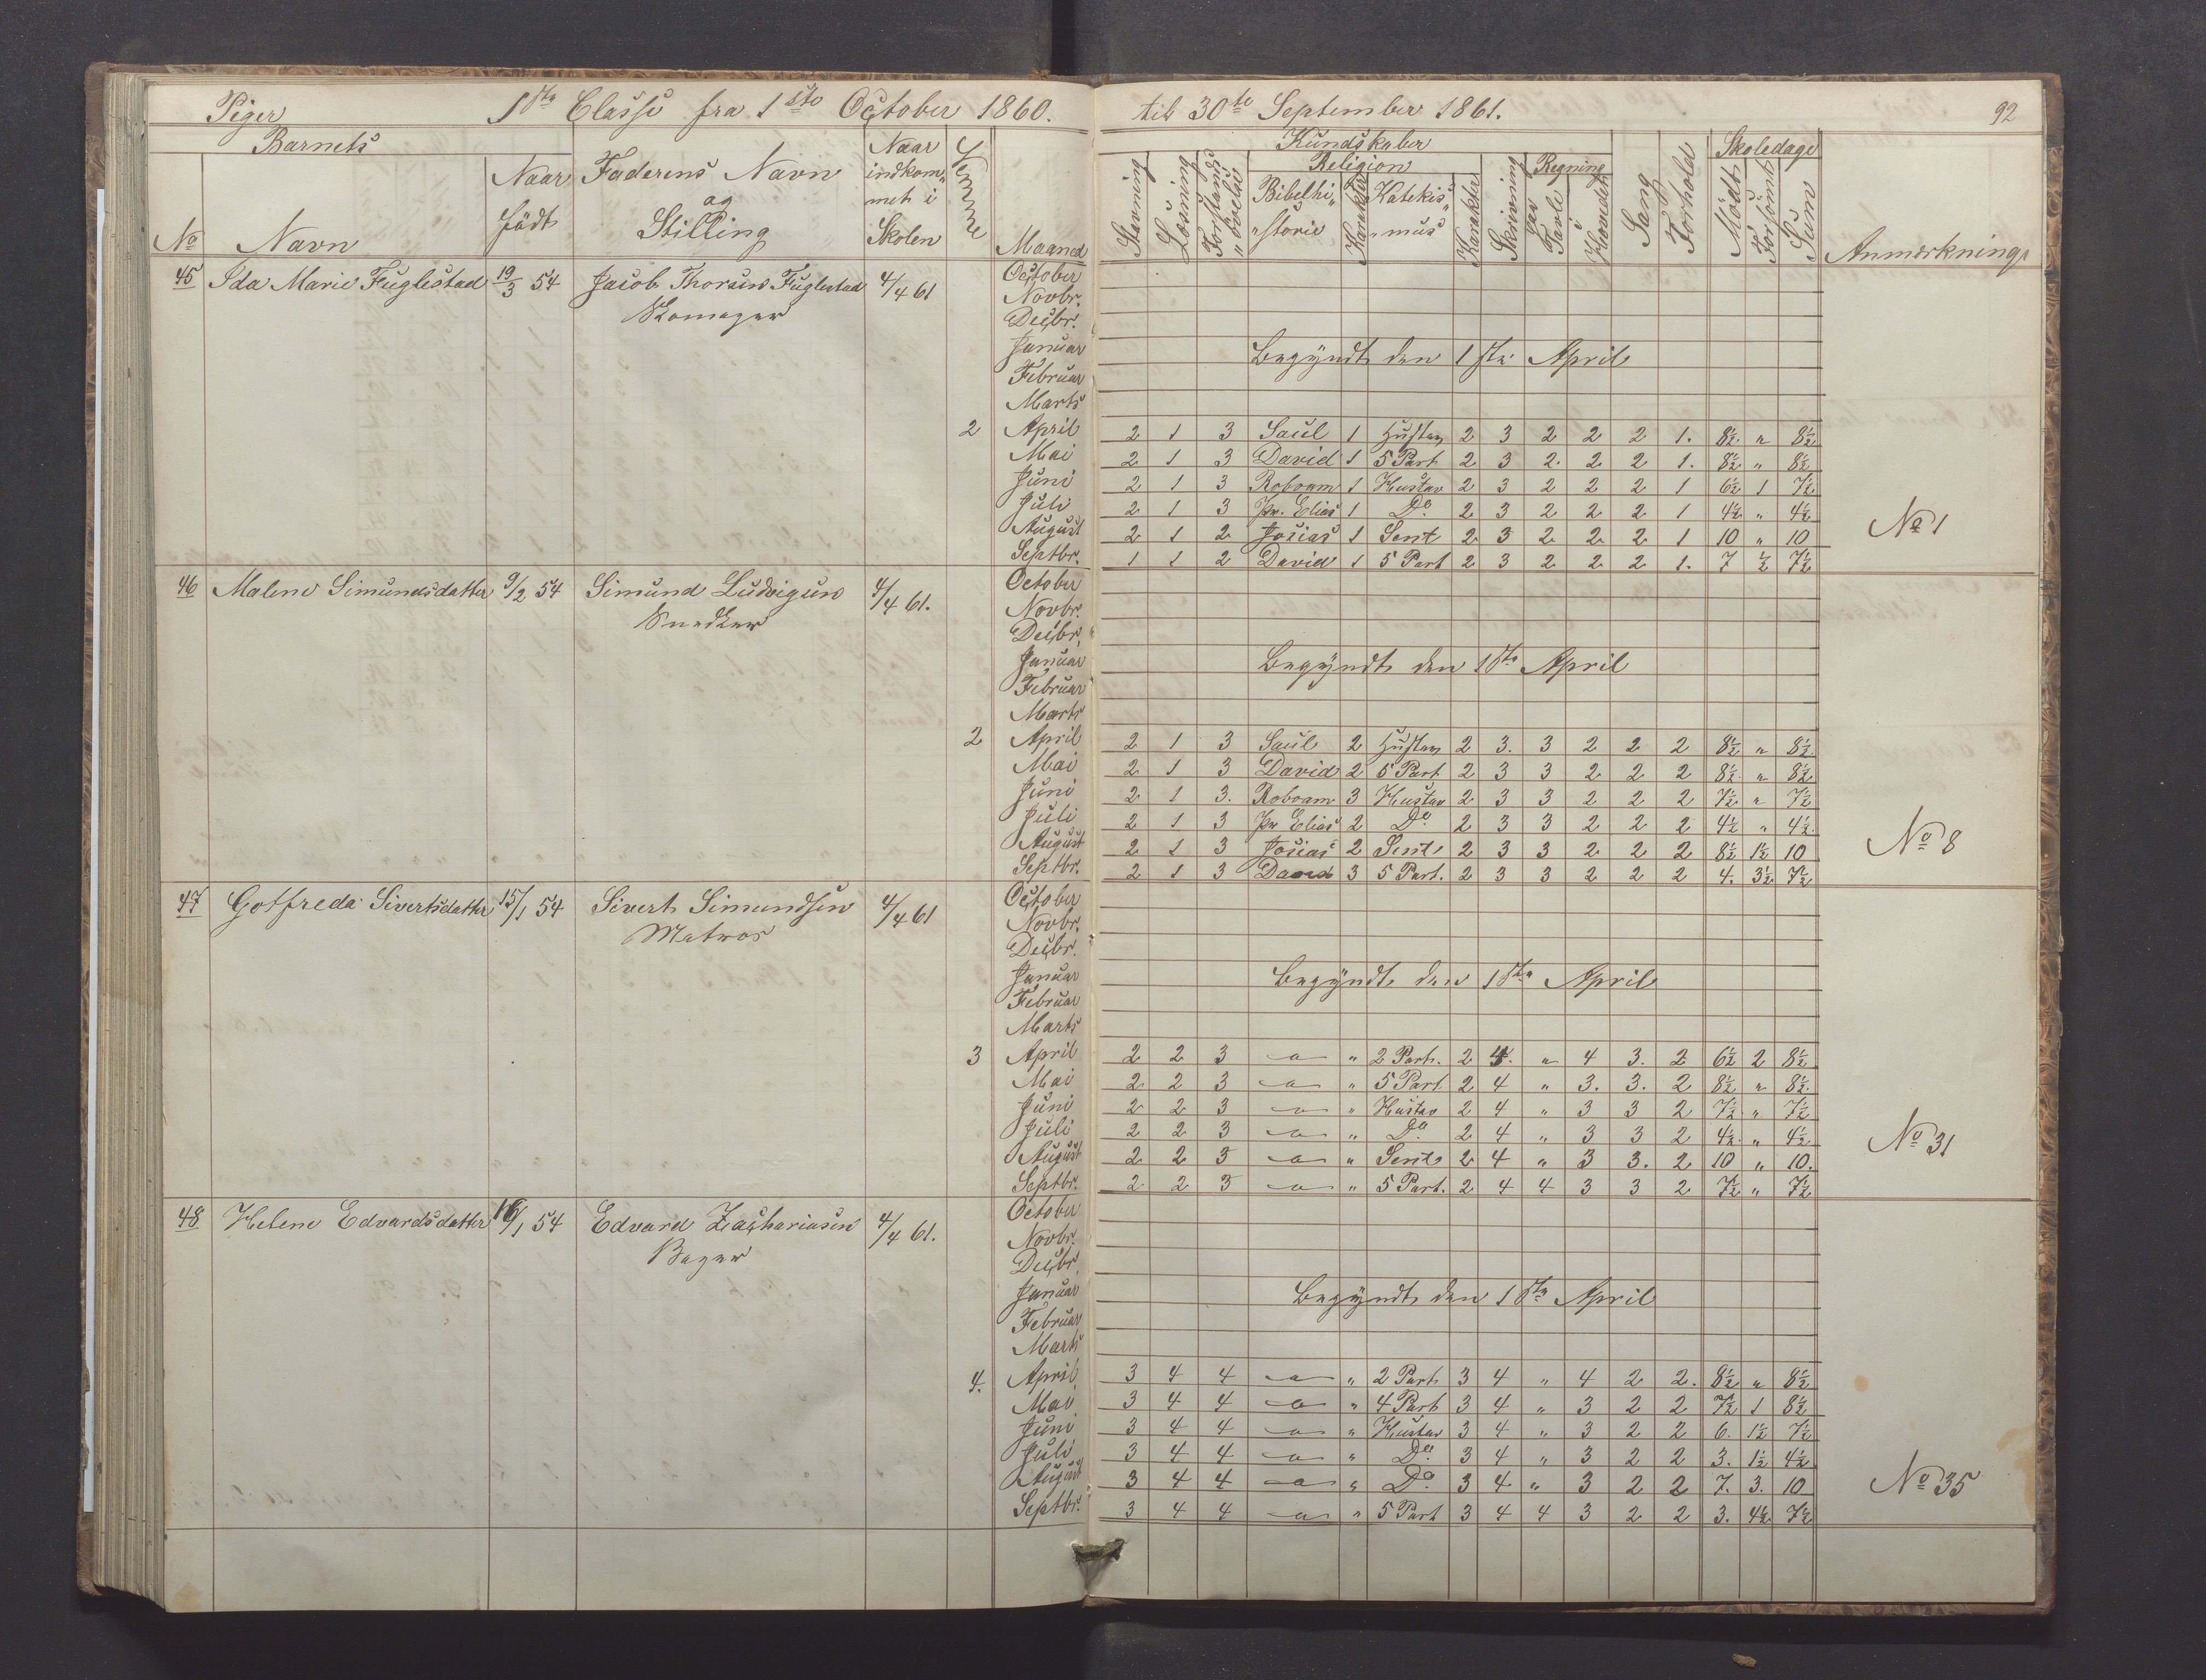 Piger 1ste Classe fra 1ste October 1860. til 30te September 1861. 92
Barnets Faderens Navn og Stilling Naar indkommet i Skolen Evne Maaned Kundskaber Skoledage
No Navn Naar født Stavning Læsning Forstandsøvelse Religion Bibelhistorie Karakter Katekismus Karakter Skrivning Regning paa Tavle i Hovedet Sang Forhold Mødt Forsømt Sum Anmærkning
45 Ida Marie Fuglestad 19/3 54 Jacob Thorsen Fuglestad 4/4 61 October
Skomager Novbr.
Decbr.
Januar Begyndt den 1ste April
Februar
Marts
2 April 2 1 3 Saul 1 Hustav 2 3 2 2 2 1. 8½ " 8½
Mai 2 1 3 David 1 5 Part 2 3 2. 2 2 1. 8½ " 8½
Juni 2 1 3 Roboam 1 Hustav 2 3 2 2 2 1 6½ 1 7½
Juli 2 1 3 Pr. Elias 1 Do 2 3 2 2 2 1 4½ " 4½ No 1
August 2 1 2 Josias 1 Sent 2 3 2 2 2 1 10 " 10
Septbr. 1 1 2 David 1 5 Part 2 3 2 2 2 1. 7 ½ 7½
46 Malene Simundsdatter 9/2 54 Simund Ludvigsen 4/4 61. October
Snedker Novbr.
Decbr.
Januar Begyndt den 1ste April
Februar
Marts
2 April 2 1 3 Saul 2 Hustav 2 3. 3 2 2 2 8½ " 8½
Mai 2 1 3 David 2 5 Part 2 3 3 2 2 2 8½ " 8½
Juni 2 1 3. Roboam 3 Hustav 2 3 3 2 2 2 7½ " 7½
Juli 2 1 3 Pr Elias 2 Do 2 3 3 2 2 2 4½ " 4½
August 2 1 3 Josias 2 Sent 2 3 3 2 2 2 8½ 1½ 10 No 8
Septbr. 2 1 3 David 3 5 Part. 2 3 3 2 2 2 4. 3½ 7½
47 Gotfreda Sivertsdatter 15/1 54 Sivert Simundsen 4/4 61 October
Matros Novbr.
Decbr.
Januar Begyndt den 1ste April
Februar
Marts
3 April 2 2 3 " " 2 Part. 2 4. " 4 3. 2 6½ 2 8½
Mai 2 2 3 " " 5 Part 2 4 " 3. 3. 2 8½ " 8½
Juni 2 2 3 " " Hustav 2 4 " 3 3 2 7½ " 7½
Juli 2 2 3 " " Do 2 4 " 3 3 2 4½ " 4½ No 31
August 2 2 3 " " Sent 2 4 " 3 3. 2 10 " 10.
Septbr. 2 2 3 " " 5 Part. 2 4 4 3 3 2 7½ " 7½
48 Helene Edvardsdatter 16/1 54 Edvard Zachariasen 4/4 61. October
Bager Novbr.
Decbr.
Januar Begyndt den 1ste April
Februar
Marts
4. April 3 4 4 " " 2 Part 3 4 " 4 2 2. 8½ " 8½
Mai 3 4 4 " " 4 Part 3 4 " 3 2 2 7½ 1 8½
Juni 3 4 4 " " Hustav 3 4 " 3 2 2 6. 1½ 7½
Juli 3 4 4 " " Do 3 4 " 3 2 2 3. 1½ 4½
August 3 4 4 " " Do 3 4 " 3 2 2 7. 3. 10 No 35
Septbr. 3 4 4 " " 5 Part 3 4 4 3 2 2 3. 4½ 7½